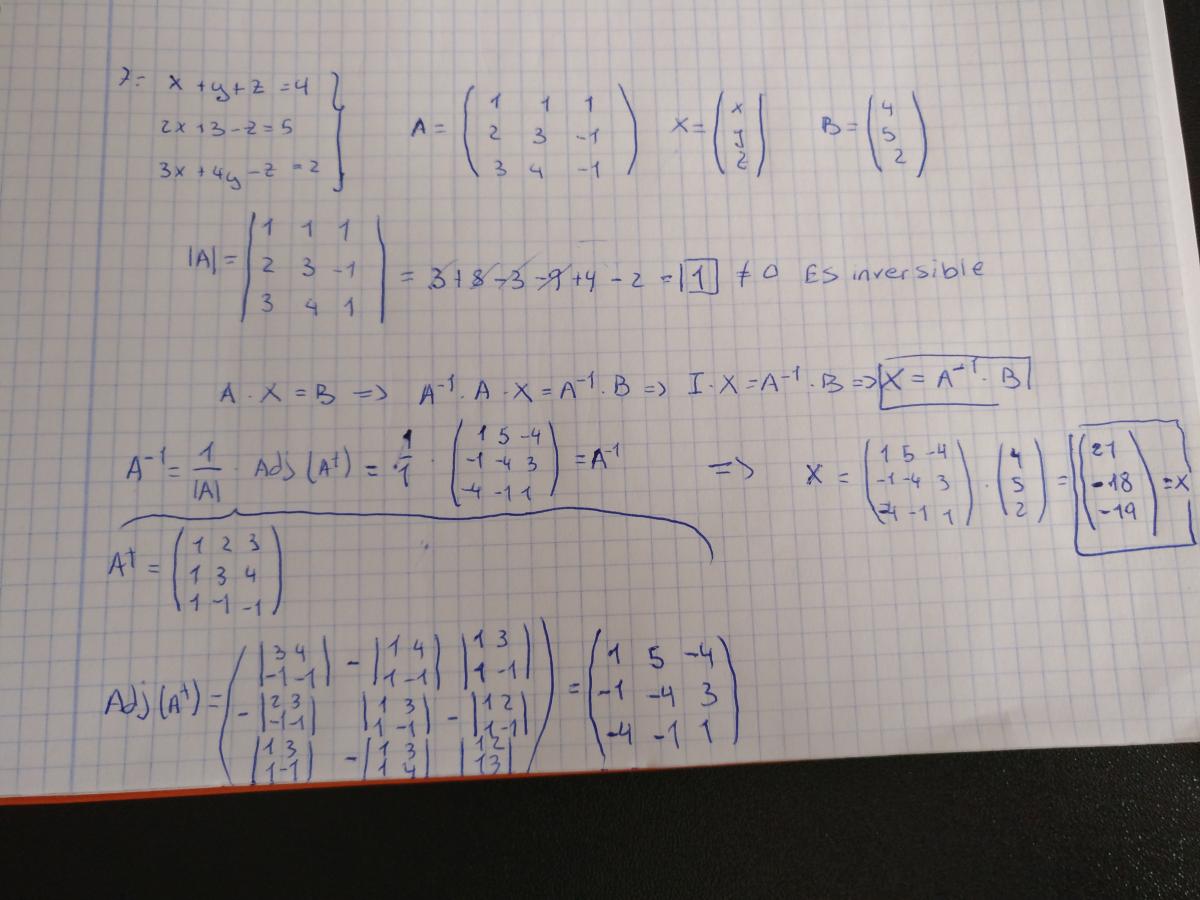 7= x + y + z = 4
2x + 3 - z = 5
3x + 4y - z = 2
A = ( 1 1 1
2 3 -1
3 4 -1 )
X = ( x
y
z )
B = ( 4
5
2 )
|A| = | 1 1 1
2 3 -1
3 4 1 | = 3 + 8 - 3 - 9 + 4 - 2 = |1| ≠ 0 Es inversible
A · X = B => A⁻¹ · A · X = A⁻¹ · B => I · X = A⁻¹ · B => X = A⁻¹ · B
A⁻¹ = 1/|A| · Adj (Aᵗ) = 1/1 · ( 1 5 -4
-1 -4 3
-4 -1 1 ) = A⁻¹
=> X = ( 1 5 -4
-1 -4 3
-4 -1 1 ) · ( 4
5
2 ) = ( 21
-18
-19 ) = X
Aᵗ = ( 1 2 3
1 3 4
1 -1 -1 )
Adj (Aᵗ) = ( | 3 4
-1 -1 | - | 1 4
1 -1 | | 1 3
1 -1 |
- | 2 3
-1 -1 | | 1 3
1 -1 | - | 1 2
1 -1 |
| 1 3
1 -1 | - | 1 3
1 4 | | 1 2
1 3 | ) = ( 1 5 -4
-1 -4 3
-4 -1 1 )